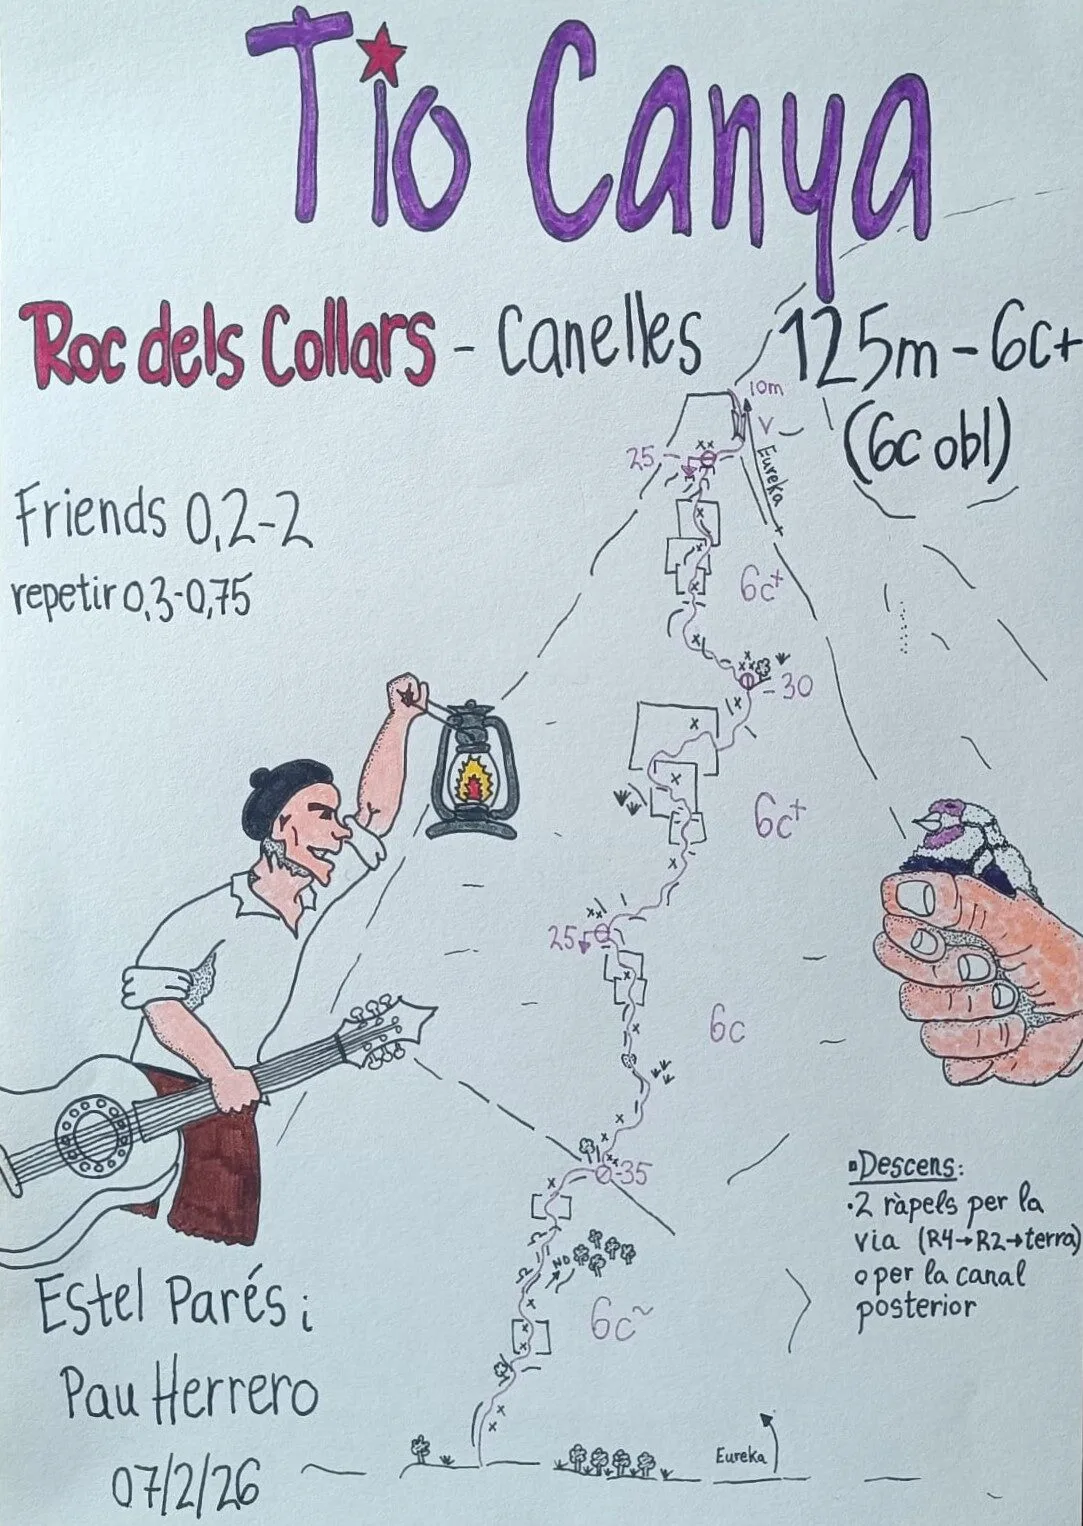 Tio Canya
Roc dels Collars - Canelles 125m - 6c+
(6c obl)
10m
V
25
Eureka
Friends 0,2-2
repetir 0,3-0,75
6c+
-30
6c+
25
6c
-35
NO
6c~
▫Descens:
·2 ràpels per la
via (R4→R2→terra)
o per la canal
posterior
Estel Parés i
Pau Herrero
07/2/26
Eureka